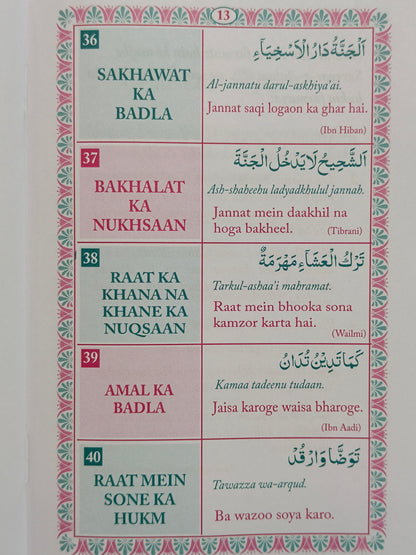 13
36
SAKHAWAT
KA
BADLA
اَلْجَنَّةُ دَارُ الْاَسْخِيَآءِ
Al-jannatu darul-askhiya'ai.
Jannat saqi logaon ka ghar hai.
(Ibn Hiban)
37
BAKHALAT
KA
NUKHSAAN
اَلشَّحِيْحُ لَا يَدْخُلُ الْجَنَّةَ
Ash-shaheehu ladyadkhulul jannah.
Jannat mein daakhil na
hoga bakheel.
(Tibrani)
38
RAAT KA
KHANA NA
KHANE KA
NUQSAAN
تَرْكُ الْعَشَآءِ مَهْرَمَةٌ
Tarkul-ashaa'i mahramat.
Raat mein bhooka sona
kamzor karta hai.
(Wailmi)
39
AMAL KA
BADLA
كَمَا تَدِيْنُ تُدَانُ
Kamaa tadeenu tudaan.
Jaisa karoge waisa bharoge.
(Ibn Aadi)
40
RAAT MEIN
SONE KA
HUKM
تَوَضَّا وَارْقُدْ
Tawazza wa-arqud.
Ba wazoo soya karo.